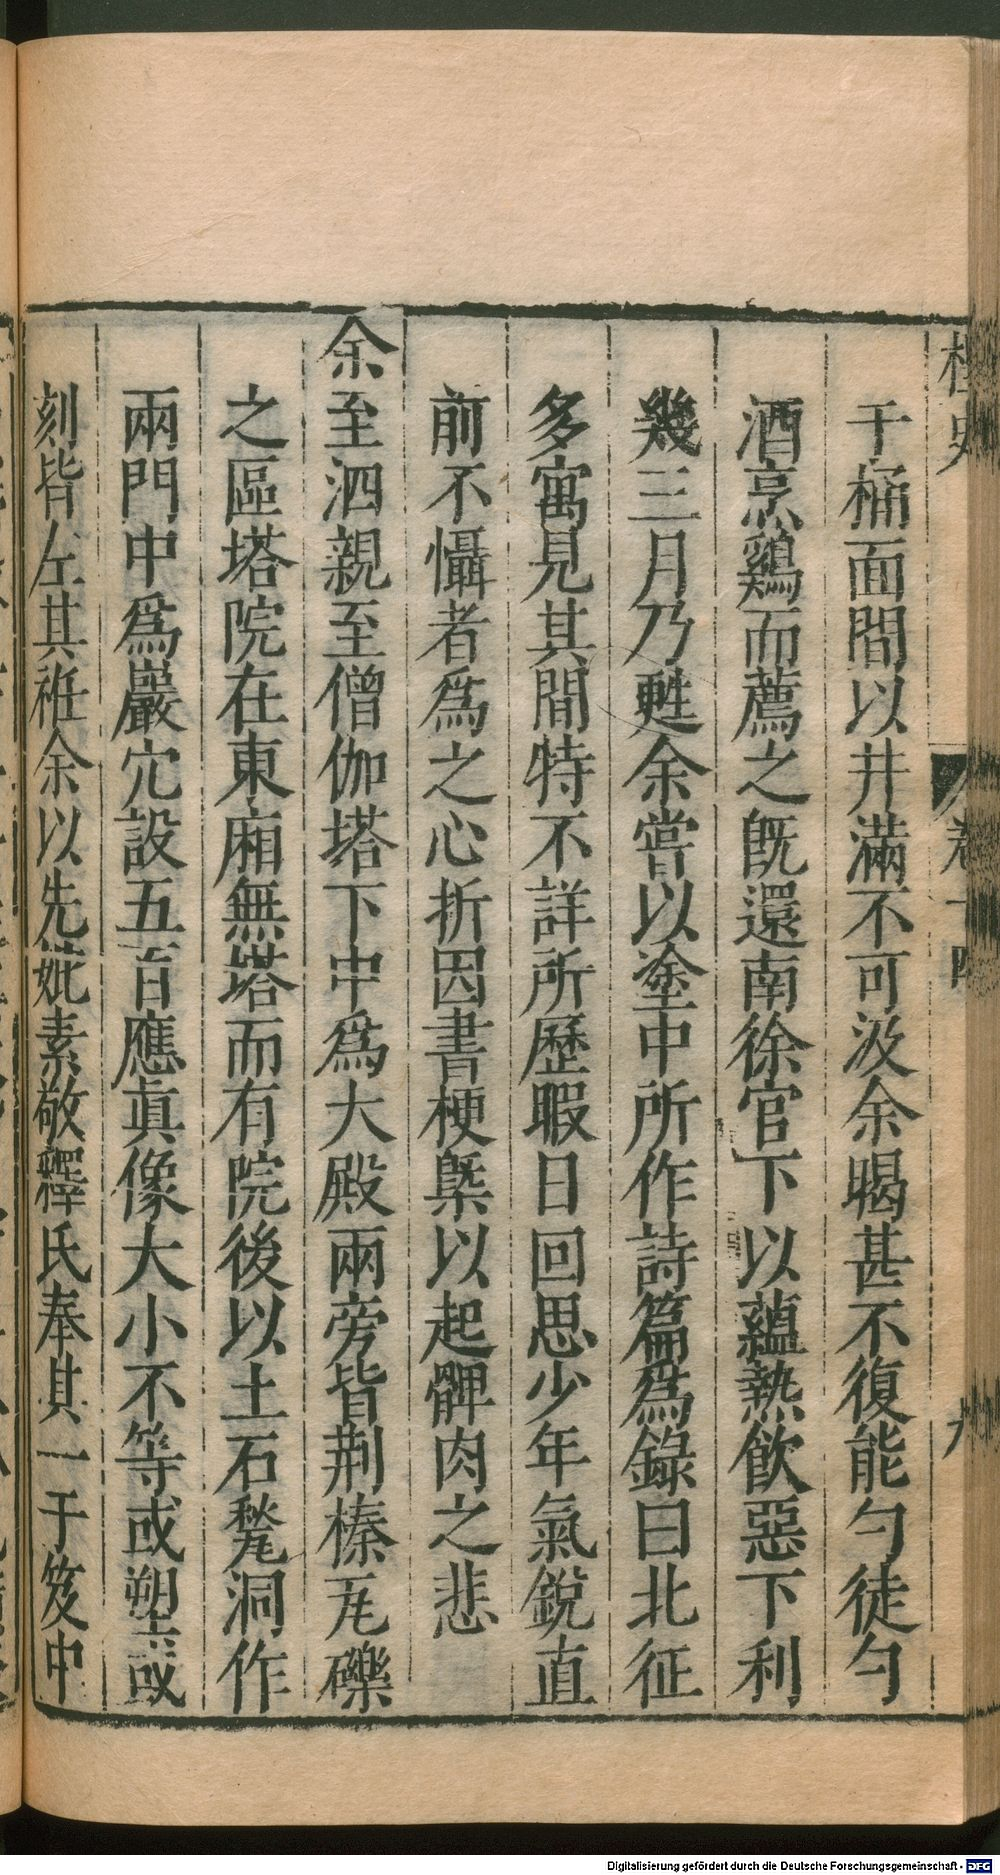 桯史
卷十四
九
于桶面間以井滿不可汲余暍甚不復能勺徒勺
酒烹鷄而薦之既還南徐官下以蘊熱飲惡下利
幾三月乃甦余嘗以塗中所作詩篇爲錄曰北征
多寓見其間特不詳所歷暇日回思少年氣銳直
前不懾者爲之心折因書梗槩以起髀肉之悲
余至泗親至僧伽塔下中爲大殿兩旁皆荆榛瓦礫
之區塔院在東廂無塔而有院後以土石甃洞作
兩門中爲巖穴設五百應眞像大小不等或塑或
刻皆左其衽余以先妣素敬釋氏奉其一于笈中
Digitalisierung gefördert durch die Deutsche Forschungsgemeinschaft - DFG